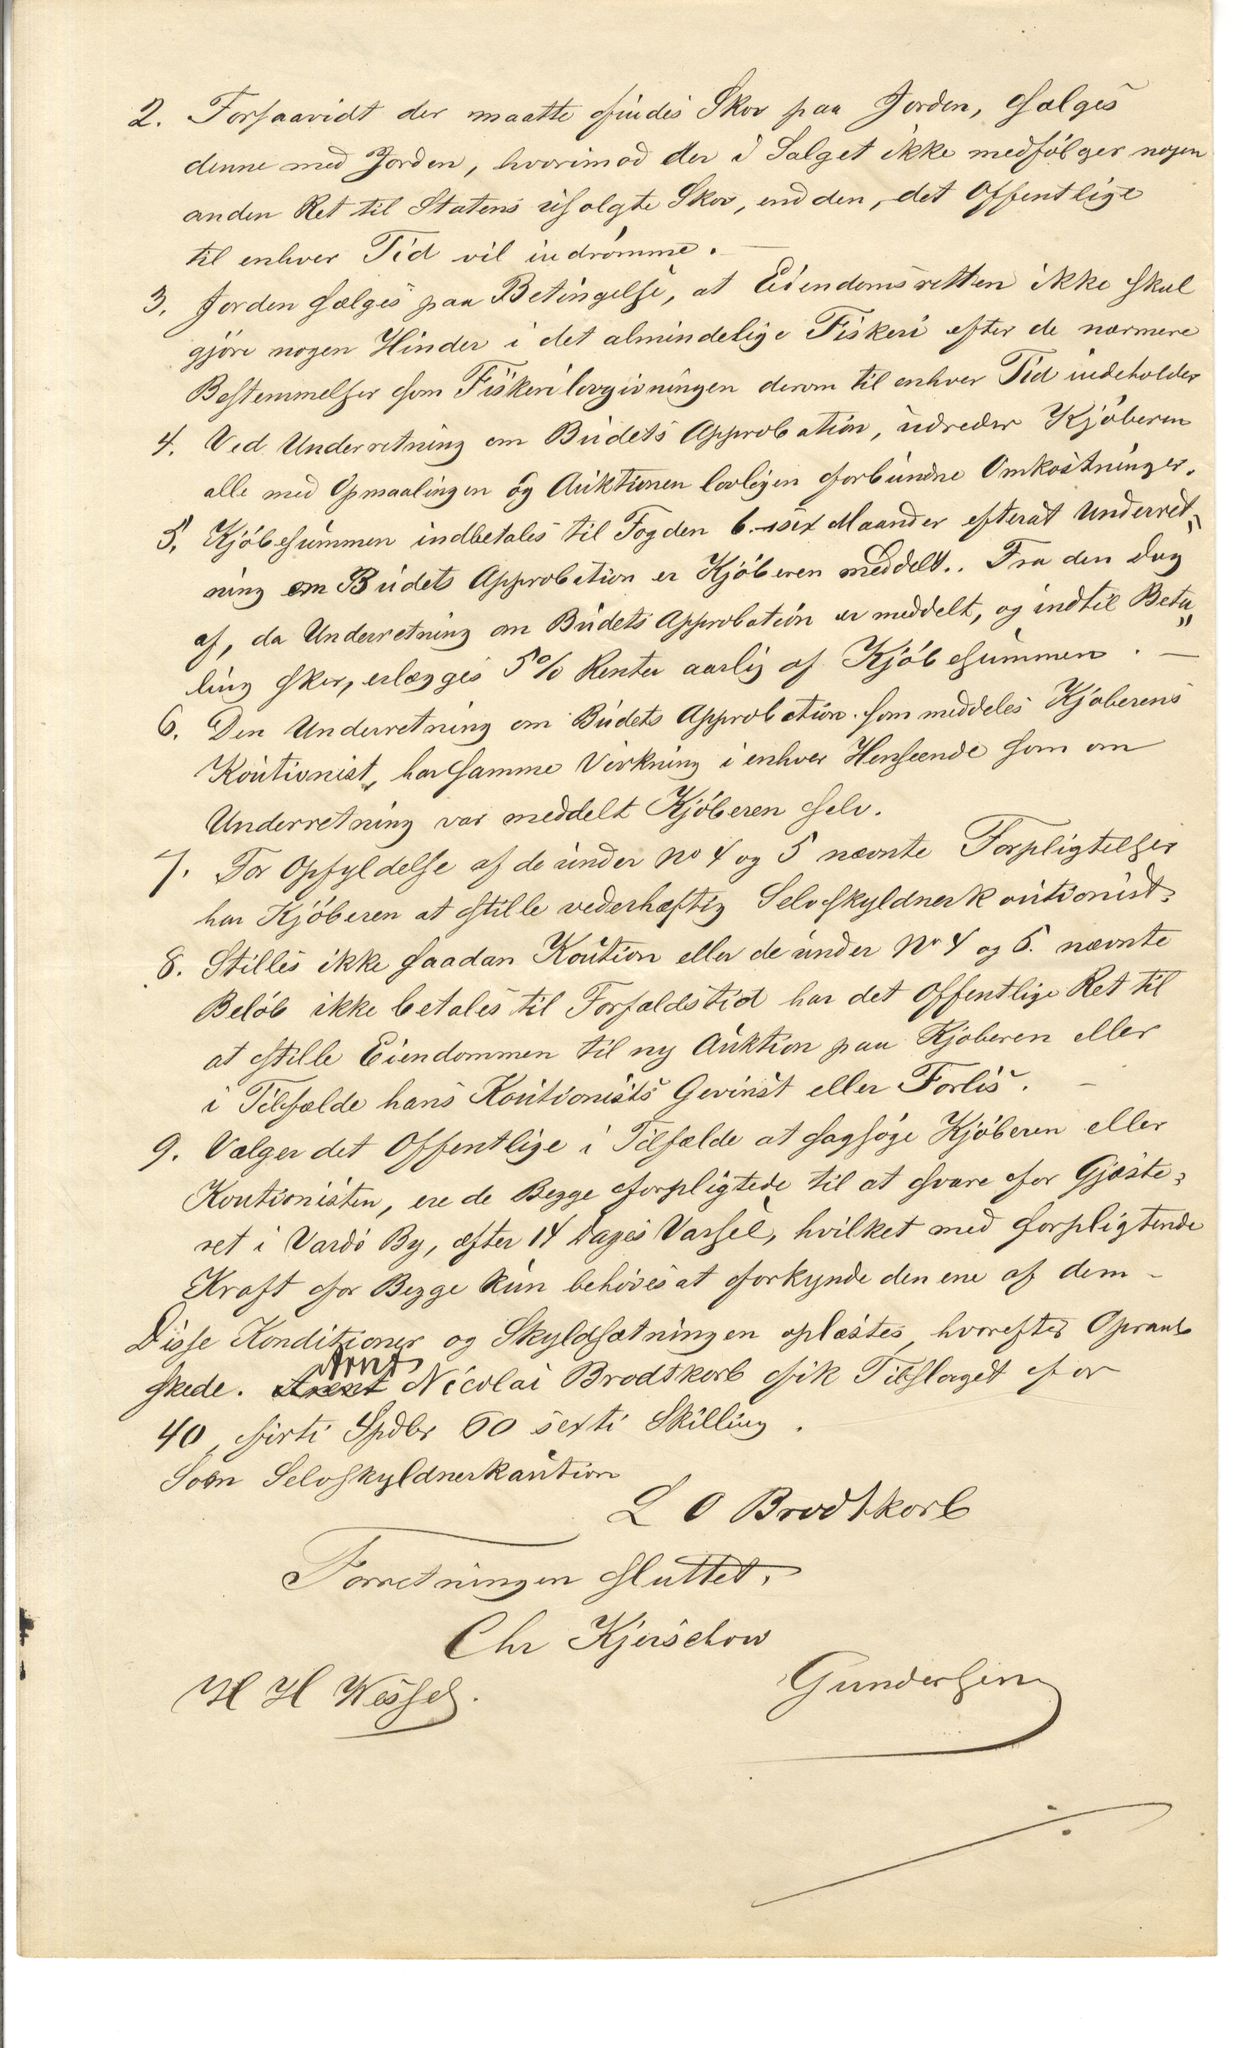 2. Forsaavidt der maatte findes Skov paa Jorden, sælges
denne med Jorden, hvorimod der i Salget ikke medfölger nogen
anden Ret til Statens usolgte Skov, end den, det Offentlige
til enhver Tid vil indrömme. —
3. Jorden sælges paa Betingelse, at Eiendomsretten ikke skal
gjöre nogen Hinder i det almindelige Fiskeri efter de nærmere
Bestemmelser som Fiskerilovgivningen derom til enhver Tid indeholder
4. Ved Underretning om Budets Approbation, udreder Kjöberen
alle med Opmaalingen og Auktionen lovligen forbundne Omkostninger.
5. Kjöbesummen indbetales til Fogden 6 – sex Maander efterat Underret„
ning om Budets Approbation er Kjöberen meddelt. Fra den Dag
af, da Underretning om Budets Approbation er meddelt, og indtil Beta„
ling sker, erlægges 5% Renter aarlig af Kjöbesummen. —
6. Den Underretning om Budets Approbation som meddeles Kjöberens
Koutionist, har samme Virkning i enhver Henseende som om
Underretning var meddelt Kjöberen selv.
7. For Opfyldelse af de under No 4 og 5 nævnte Forpligtelser
har Kjöberen at stille vederhæftig Selvskyldnerkoutionist.
8. Stilles ikke saadan Koution eller de under No 4 og 5. nævnte
Belöb ikke betales til Forfaldstid har det Offentlige Ret til
at stille Eiendommen til ny Auktion paa Kjöberen eller
i Tilfælde hans Koutionists Gevinst eller Forlis. —
9. Vælger det Offentlige i Tilfælde at sagsöge Kjöberen eller
Koutionisten, ere de Begge forpligtede til at svare for Gjæste-
ret i Vardö By, efter 14 Dages Varsel, hvilket med forpligtende
Kraft for Begge kun behöves at forkynde den ene af dem –
Disse Konditioner og Skyldsætningen oplæstes, hvorefter Opraab
skede. Arnt Nicolai Brodtkorb fik Tilslaget for
40, firti Spdlr 60 sexti Skilling.
Som Selvskyldnerkaution
L O Brodtkorb
Forretningen sluttet.
Chr Kjerschow
H H Wessel. Gundersen